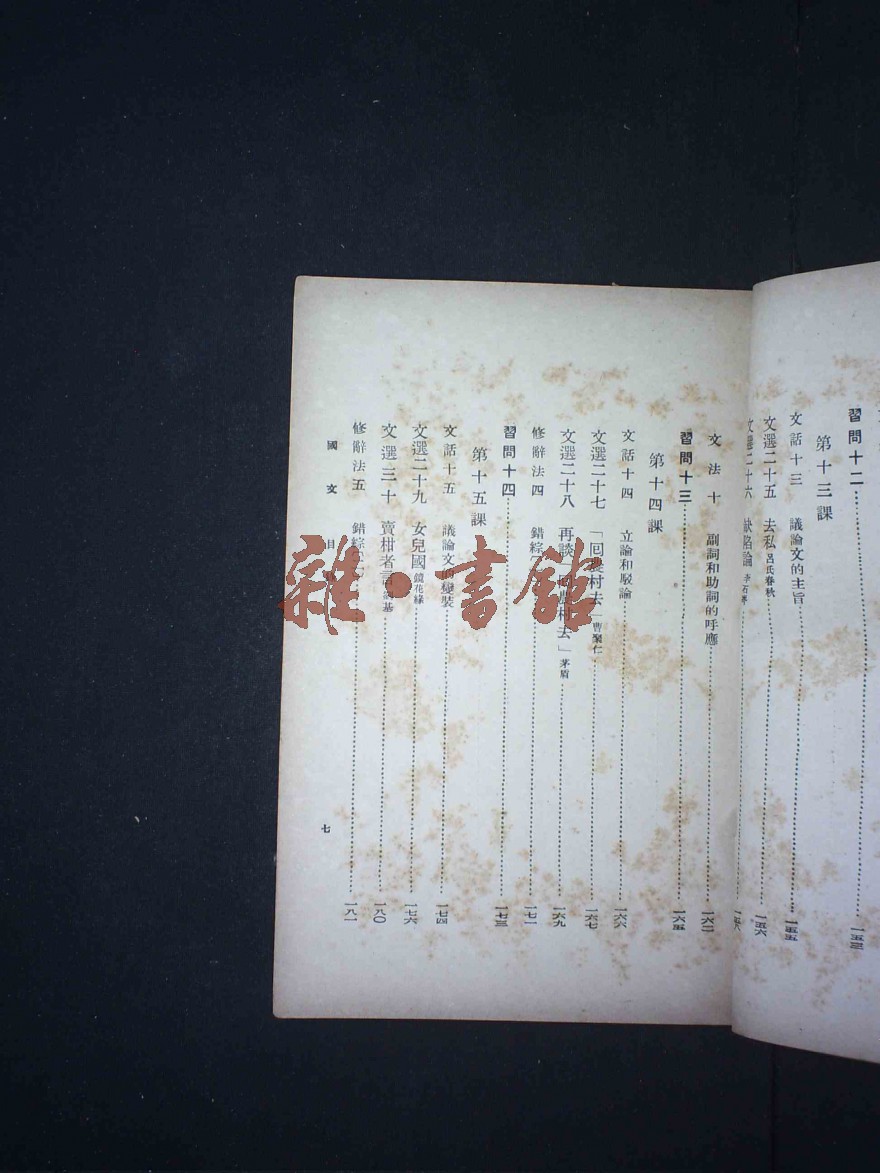 習問十二……一五三
第十三課
文話十三 議論文的主旨……一五五
文選二十五 去私 呂氏春秋……一五六
文選二十六 缺陷論 李石岑……一五八
文法十 副詞和助詞的呼應……一六二
習問十三……一六五
第十四課
文話十四 立論和駁論……一六六
文選二十七 「囘農村去」 曹聚仁……一六七
文選二十八 再談「囘農村去」 茅盾……一六九
修辭法四 錯綜……一七一
習問十四……一七三
第十五課
文話十五 議論文的變裝……一七四
文選二十九 女兒國 鏡花緣……一七六
文選三十 賣柑者言 劉基……一八〇
修辭法五 錯綜……一八一
國文 目 七
雜·書館